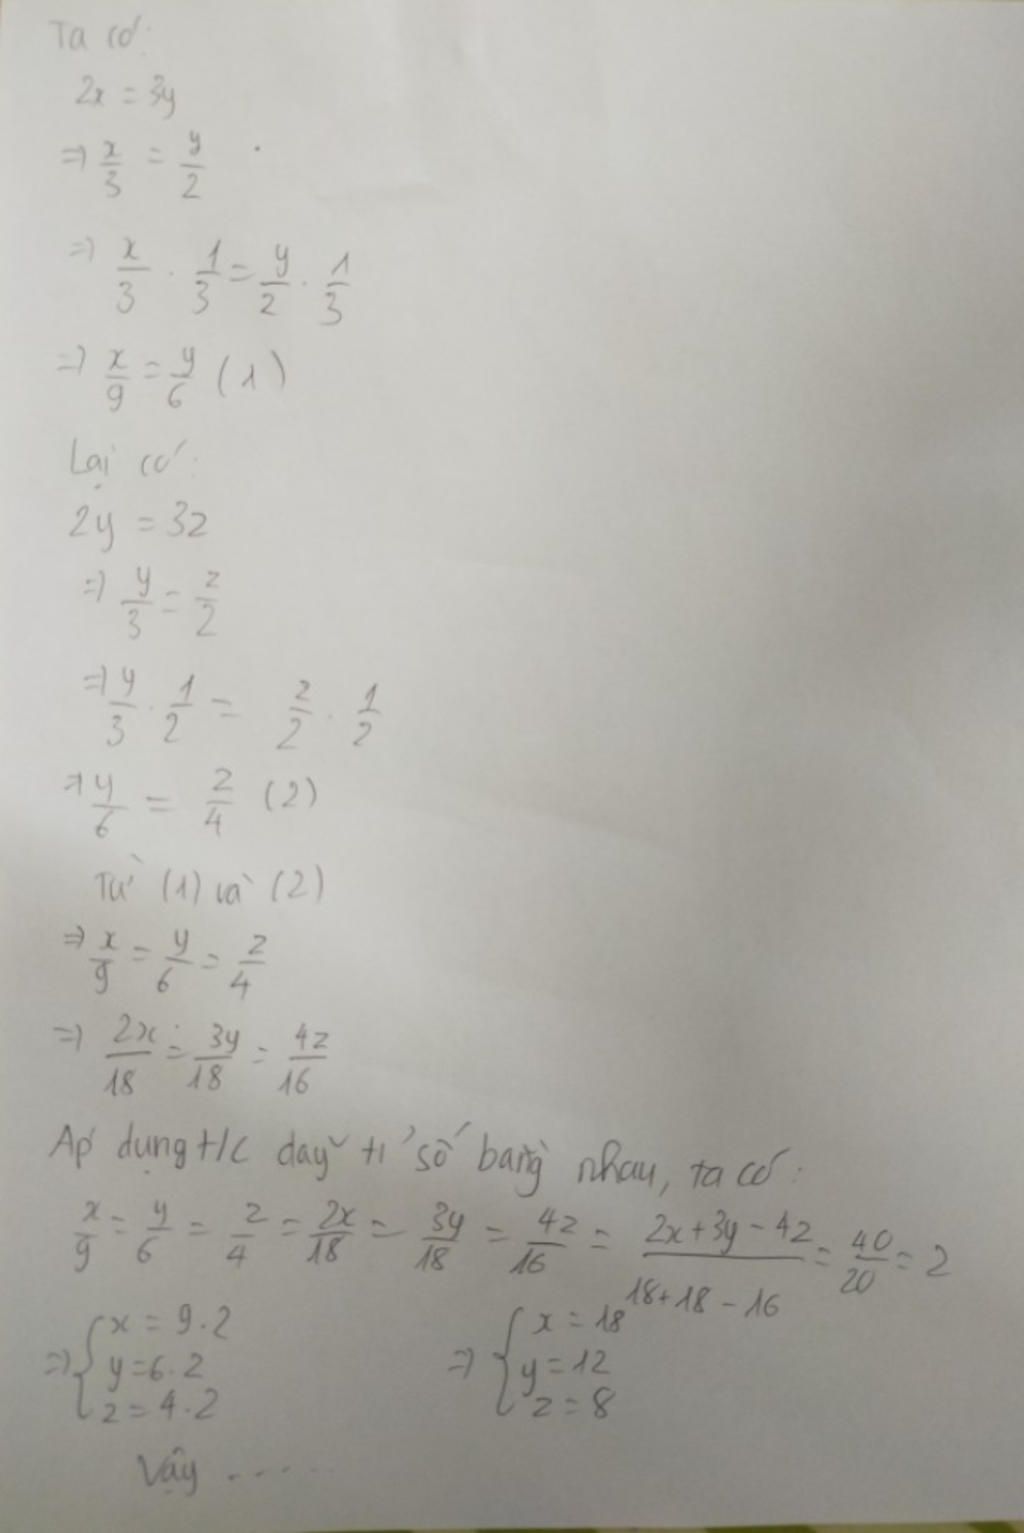 Ta có:
2x = 3y
⇒ x/3 = y/2
⇒ x/3 . 1/3 = y/2 . 1/3
⇒ x/9 = y/6 (1)
Lại có:
2y = 3z
⇒ y/3 = z/2
⇒ y/3 . 1/2 = z/2 . 1/2
⇒ y/6 = z/4 (2)
Từ (1) và (2)
⇒ x/9 = y/6 = z/4
⇒ 2x/18 = 3y/18 = 4z/16
Áp dụng t/c dãy tỉ số bằng nhau, ta có:
x/9 = y/6 = z/4 = 2x/18 = 3y/18 = 4z/16 = (2x+3y-4z)/(18+18-16) = 40/20 = 2
⇒ { x = 9.2 ⇒ { x = 18
y = 6.2 y = 12
z = 4.2 z = 8
Vậy .....